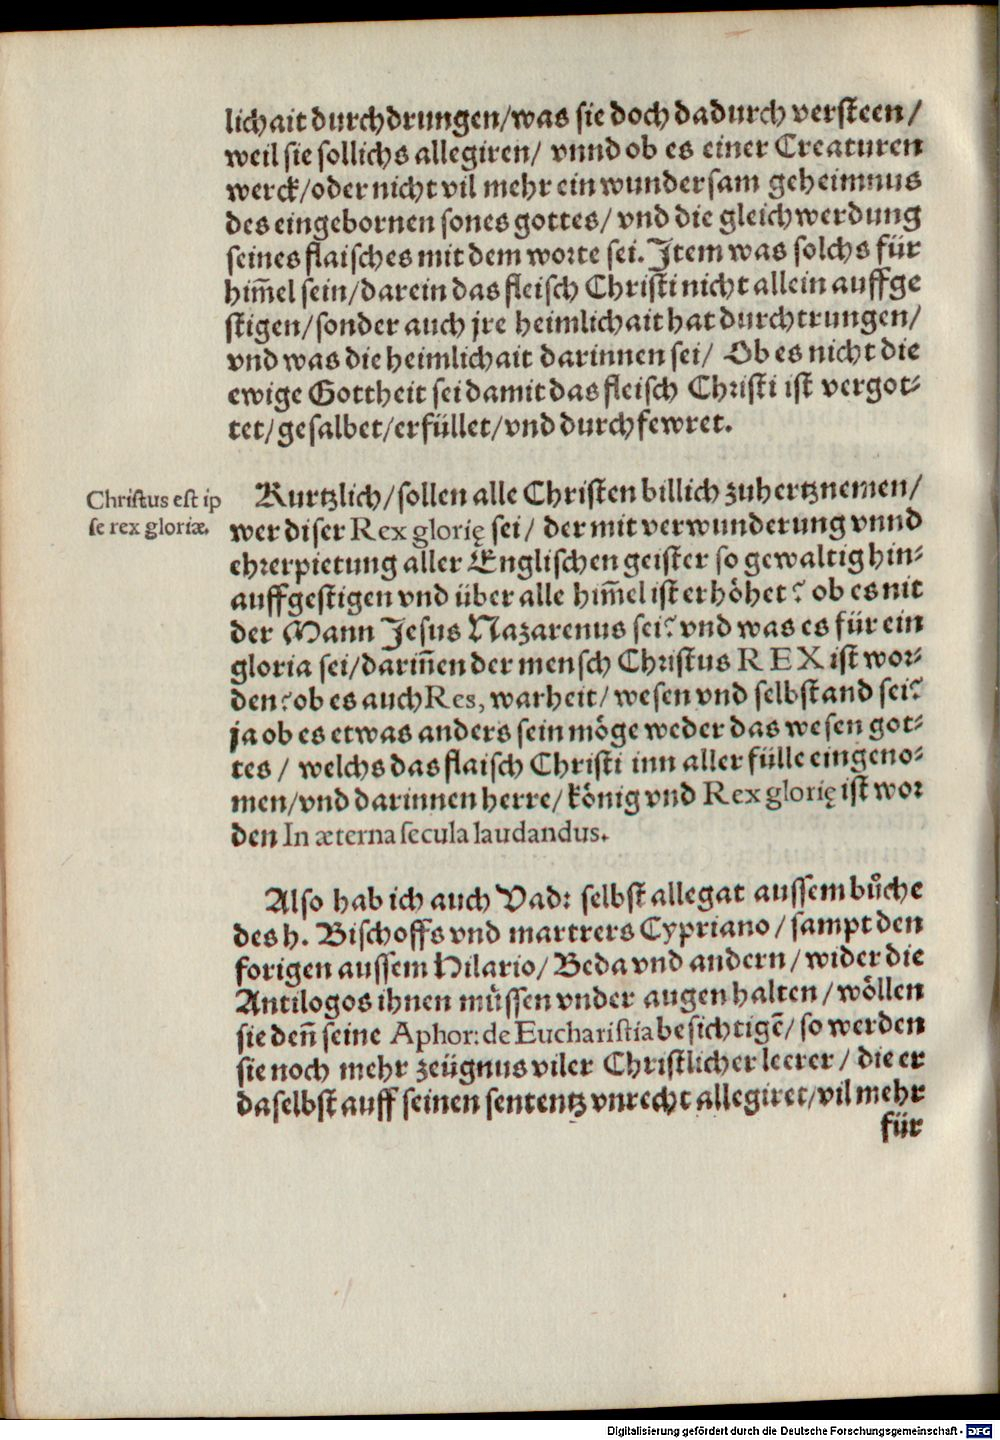 lichait durchdrungen/was sie doch dadurch versteen/
weil sie sollichs allegiren/ vnnd ob es einer Creaturen
werck/oder nicht vil mehr ein wundersam geheimnus
des eingebornen sones gottes/ vnd die gleichwerdung
seines flaisches mit dem worte sei. Jtem was solchs für
him̃el sein/darein das fleisch Christi nicht allein auffge
stigen/sonder auch jre heimlichait hat durchtrungen/
vnd was die heimlichait darinnen sei/ Ob es nicht die
ewige Gottheit sei damit das fleisch Christi ist vergot-
tet/gesalbet/erfüllet/vnd durchfewret.
Christus est ip
se rex gloriæ.
Kurtzlich/sollen alle Christen billich zuhertznemen/
wer diser Rex glorię sei/ der mit verwunderung vnnd
ehrerpietung aller Englischen geister so gewaltig hin-
auffgestigen vnd über alle him̃el ist erhöhet? ob es nit
der Mann Jesus Nazarenus sei? vnd was es für ein
gloria sei/darin̄en der mensch Christus REX ist wor-
den? ob es auch Res, warheit/ wesen vnd selbstand sei?
ja ob es etwas anders sein möge weder das wesen got-
tes / welchs das flaisch Christi inn aller fülle eingeno-
men/vnd darinnen herre/ könig vnd Rex glorię ist wor
den In æterna secula laudandus.
Also hab ich auch Vad: selbst allegat aussem bůche
des h. Bischoffs vnd martrers Cypriano / sampt den
forigen aussem Hilario/ Beda vnd andern / wider die
Antilogos ihnen müssen vnder augen halten / wöllen
sie den̄ seine Aphor: de Eucharistia besichtigē/ so werden
sie noch mehr zeügnus viler Christlicher leerer / die er
daselbst auff seinen sententz vnrecht allegiret/vil mehr
für
Digitalisierung gefördert durch die Deutsche Forschungsgemeinschaft - DFG